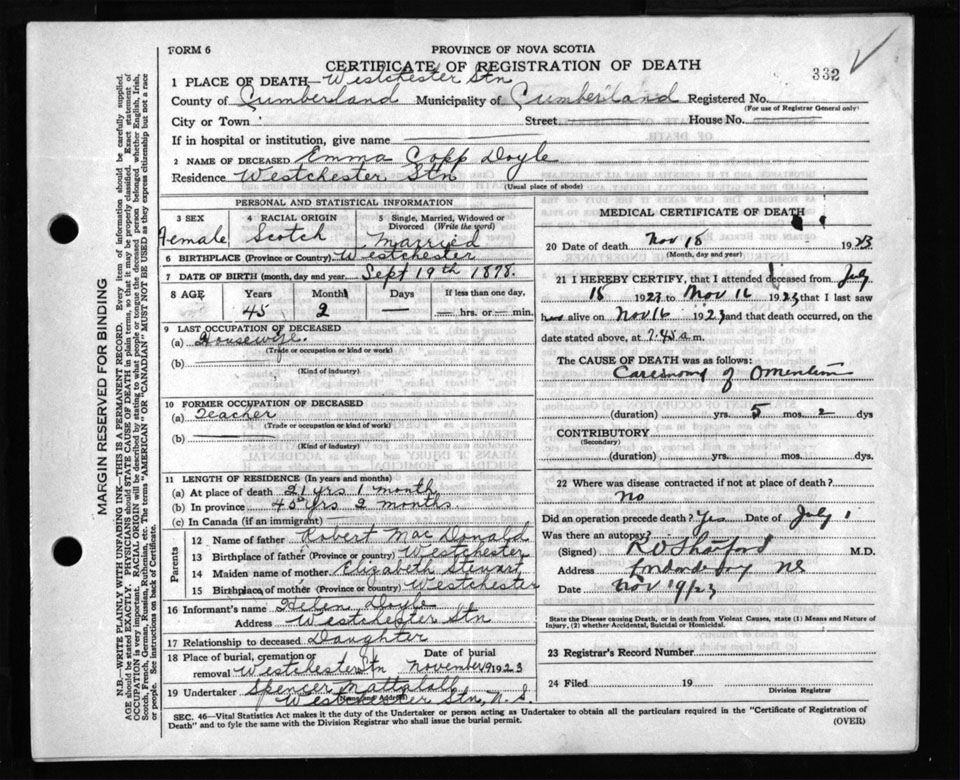 FORM 6
PROVINCE OF NOVA SCOTIA
CERTIFICATE OF REGISTRATION OF DEATH
332
1 PLACE OF DEATH—Westchester Stn
County of Cumberland Municipality of Cumberland Registered No.
(For use of Registrar General only)
City or Town Street House No.
If in hospital or institution, give name
2 NAME OF DECEASED Emma Copp Doyle
Residence Westchester Stn
(Usual place of abode)
PERSONAL AND STATISTICAL INFORMATION
3 SEX 4 RACIAL ORIGIN 5 Single, Married, Widowed or Divorced (Write the word)
Female Scotch Married
6 BIRTHPLACE (Province or Country) Westchester
7 DATE OF BIRTH (month, day and year) Sept 19th 1878.
8 AGE Years Months Days If less than one day,
45 2 — — hrs. or — min.
9 LAST OCCUPATION OF DECEASED
(a) Housewife.
(Trade or occupation or kind or work)
(b)
(Kind of industry)
10 FORMER OCCUPATION OF DECEASED
(a) Teacher
(Trade or occupation or kind of work)
(b)
(Kind of industry)
11 LENGTH OF RESIDENCE (In years and months)
(a) At place of death 21 yrs 1 month
(b) In province 45 yrs 2 months
(c) In Canada (if an immigrant)
Parents
12 Name of father Robert MacDonald
13 Birthplace of father (Province or country) Westchester
14 Maiden name of mother Elizabeth Stewart
15 Birthplace of mother (Province or country) Westchester
16 Informant's name Helen Doyle
Address Westchester Stn
17 Relationship to deceased Daughter
18 Place of burial, cremation or removal Westchester Stn Date of burial November 19 1923
19 Undertaker Spencer Mattatall
(Name and Address) Westchester Stn, N.S.
MEDICAL CERTIFICATE OF DEATH
20 Date of death Nov 18 1923
(Month, day and year)
21 I HEREBY CERTIFY, that I attended deceased from July
18 1923 to Nov 16 1923 that I last saw
alive on Nov 16 1923 and that death occurred, on
date stated above, at 7.45 a.m.
The CAUSE OF DEATH was as follows:
of Omentum
(duration) yrs. 5 mos. 2 dys
CONTRIBUTORY
(Secondary)
(duration) yrs. mos. dys.
22 Where was disease contracted if not at place of death?
no
Did an operation precede death? Yes Date of July 1
Was there an autopsy?
(Signed) M.D.
Address NS
Date Nov 19/23
State the Disease causing Death, or in death from Violent Causes, state (1) Means and Nature of Injury, (2) whether Accidental, Suicidal or Homicidal.
23 Registrar's Record Number
24 Filed 19
Division Registrar
SEC. 46—Vital Statistics Act makes it the duty of the Undertaker or person acting as Undertaker to obtain all the particulars required in the "Certificate of Registration of
Death" and to fyle the same with the Division Registrar who shall issue the burial permit. (OVER)
MARGIN RESERVED FOR BINDING
N.B.—WRITE PLAINLY WITH UNFADING INK—THIS IS A PERMANENT RECORD. Every item of information should be carefully supplied.
AGE should be stated EXACTLY. PHYSICIANS should STATE CAUSE OF DEATH in plain terms, so that it may be properly classified. Exact statement of
OCCUPATION is very important. RACIAL ORIGIN will be described by stating to what people or tongue the deceased person belonged whether English, Irish,
Scotch, French, German, Russian, Ruthenian, etc. The terms "AMERICAN" OR "CANADIAN" MUST NOT BE USED as they express citizenship but not a race
or people. See instructions on back of Certificate.